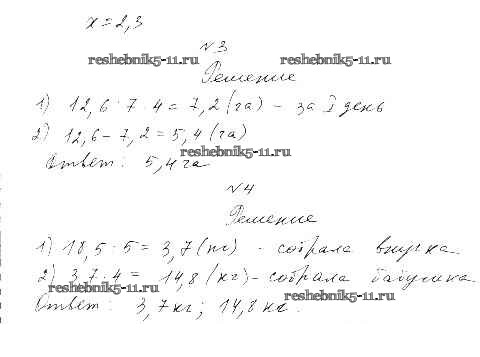 x = 2,3
№ 3
reshebnik5-11.ru reshebnik5-11.ru
Решение
1) 12,6 : 7 · 4 = 7,2 (га) - за I день
2) 12,6 - 7,2 = 5,4 (га)
reshebnik5-11.ru
Ответ: 5,4 га
№ 4
Решение
1) 18,5 : 5 = 3,7 (кг) - собрала внучка.
2) 3,7 · 4 = 14,8 (кг) - собрала бабушка
reshebnik5-11.ru reshebnik5-11.ru
Ответ: 3,7 кг; 14,8 кг.